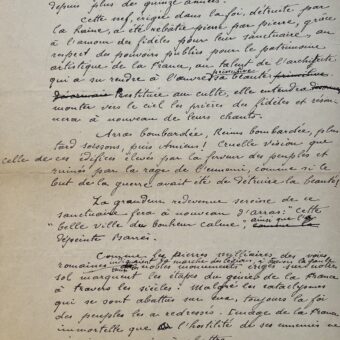 depuis plus de quinze années.
Cette nef, érigée dans la foi, détruite par
la haine, a été rebâtie pierre par pierre, grâce
à l'amour des fidèles pour leur sanctuaire, au
respect des pouvoirs publics pour le patrimoine
artistique de la France, au talent de l'architecte
primitive
qui a su rendre à l'œuvre sa beauté primitive.
Restituée au culte, elle entendra
monter vers le ciel les prières des fidèles et réson-
nera à nouveau de leurs chants.
Arras bombardée, Reims bombardée, plus
tard Soissons, puis Amiens! Cruelle vision que
celle de ces édifices élevés par la ferveur des peuples et
ruinés par la rage de l'ennemi, comme si le
but de la guerre avait été de détruire la beauté!
La grandeur redevenue sereine de ce
sanctuaire fera à nouveau d'Arras "Cette
"belle ville du bonheur calme", ainsi que l'a
dépeinte Barrès.
Comme les pierres milliaires des voies
romaines la marche des légions
nobles monuments érigés sur notre
sol marquent les étapes du génie de la France
à travers les siècles. Malgré les cataclysmes
qui se sont abattus sur eux, toujours la foi
des peuples les a redressés. Image de la France
immortelle que l'hostilité de ses ennemis ne